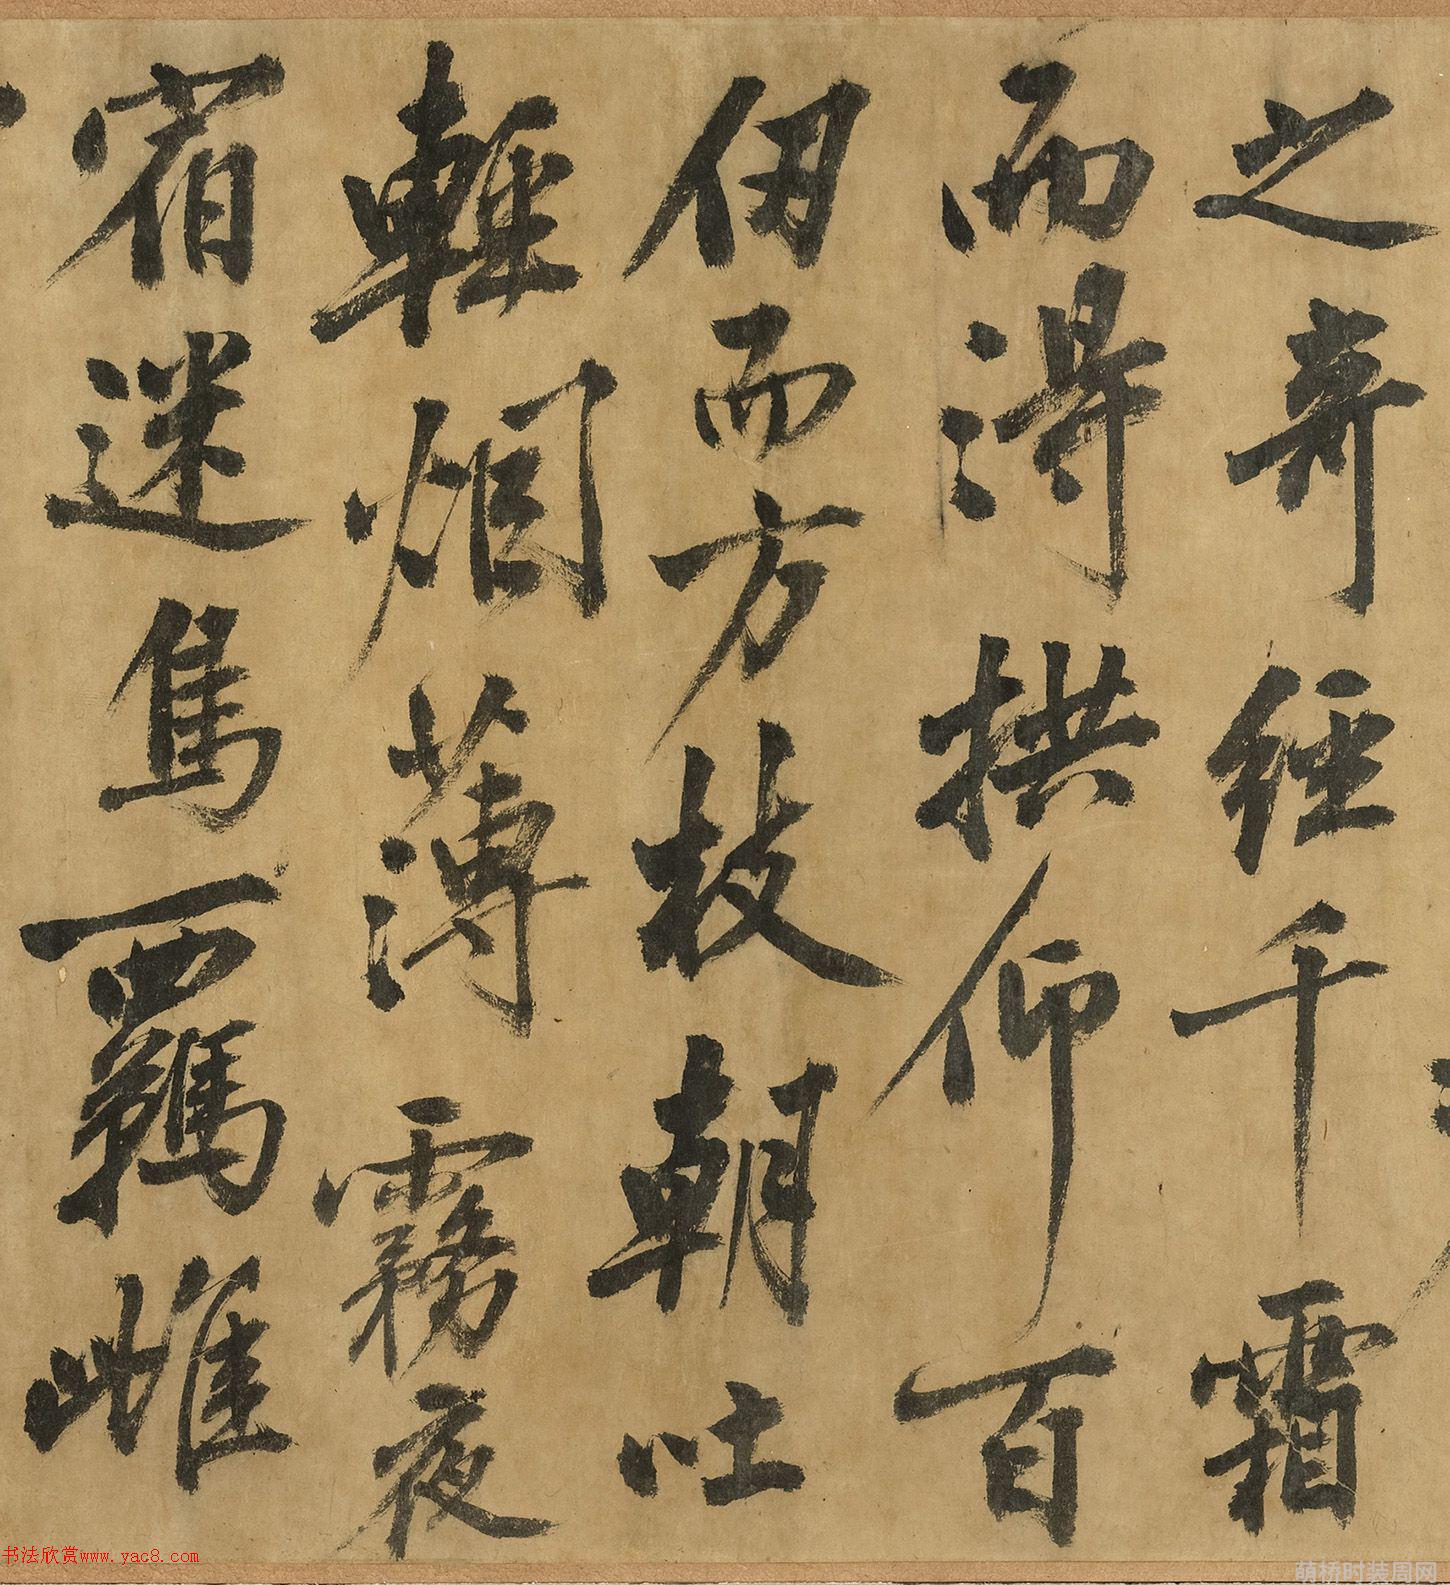 之奇經千霜
而得拱仰百
仞而方枝朝吐
輕烟薄霧夜
宿迷鳥羈雌
书法欣赏www.yac8.com
萌桥时装周网